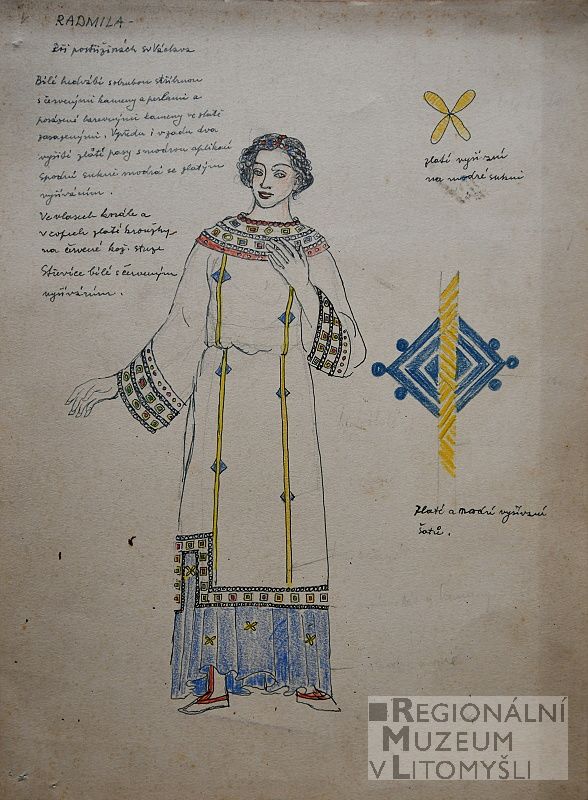 RADMILA -
Při postřižinách sv Václava
Bílé hedvábí s obrubou stříbrnou
s červenými kameny a perlami a
barevnými kameny ve zlatě
zasazenými. Vpředu i vzadu dva
vyšité zlaté pasy s modrou aplikací
Spodní sukně modrá se zlatým
vyšíváním.
Ve vlasech korále a
v copech zlaté kroužky
na červené kož. stuze
Střevíce bílé s červeným
vyšíváním.
zlaté vyšívání
na modré sukni
Zlaté a modré vyšívání
šatů.
REGIONÁLNÍ
MUZEUM
V LITOMYŠLI